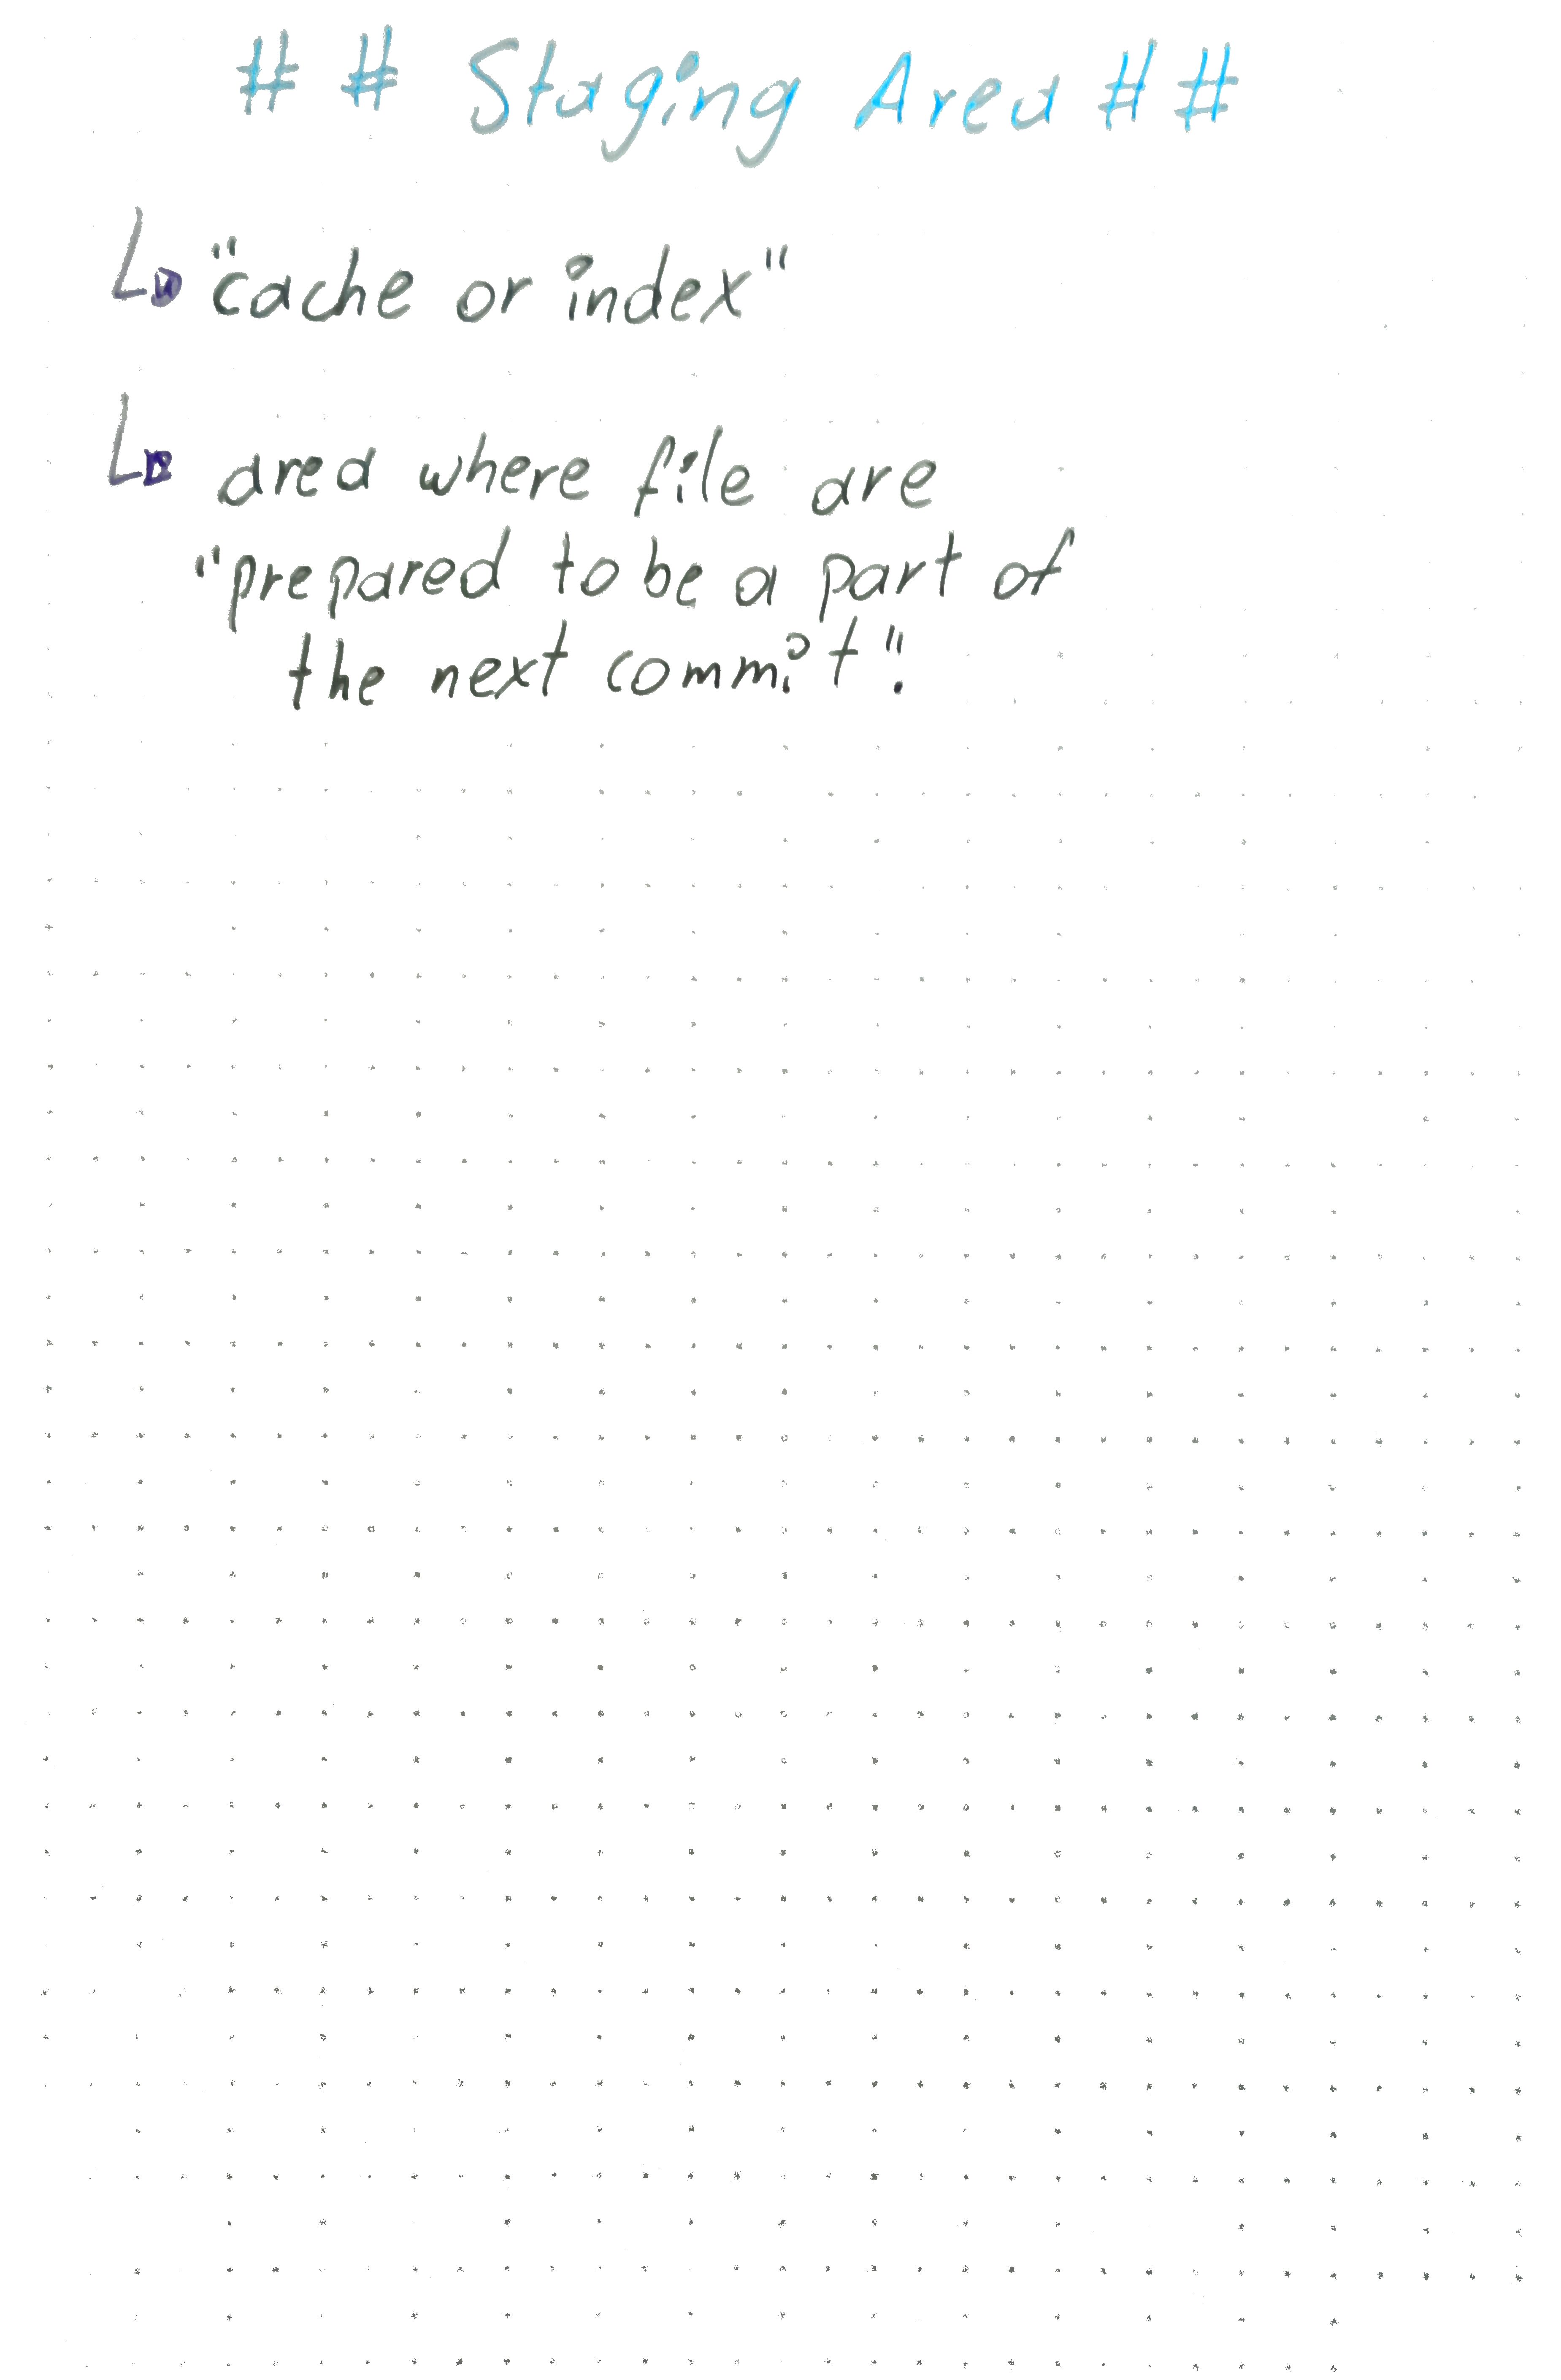 # # Staging Area # #
"cache or index"
area where file are
"prepared to be a part of
the next commit".